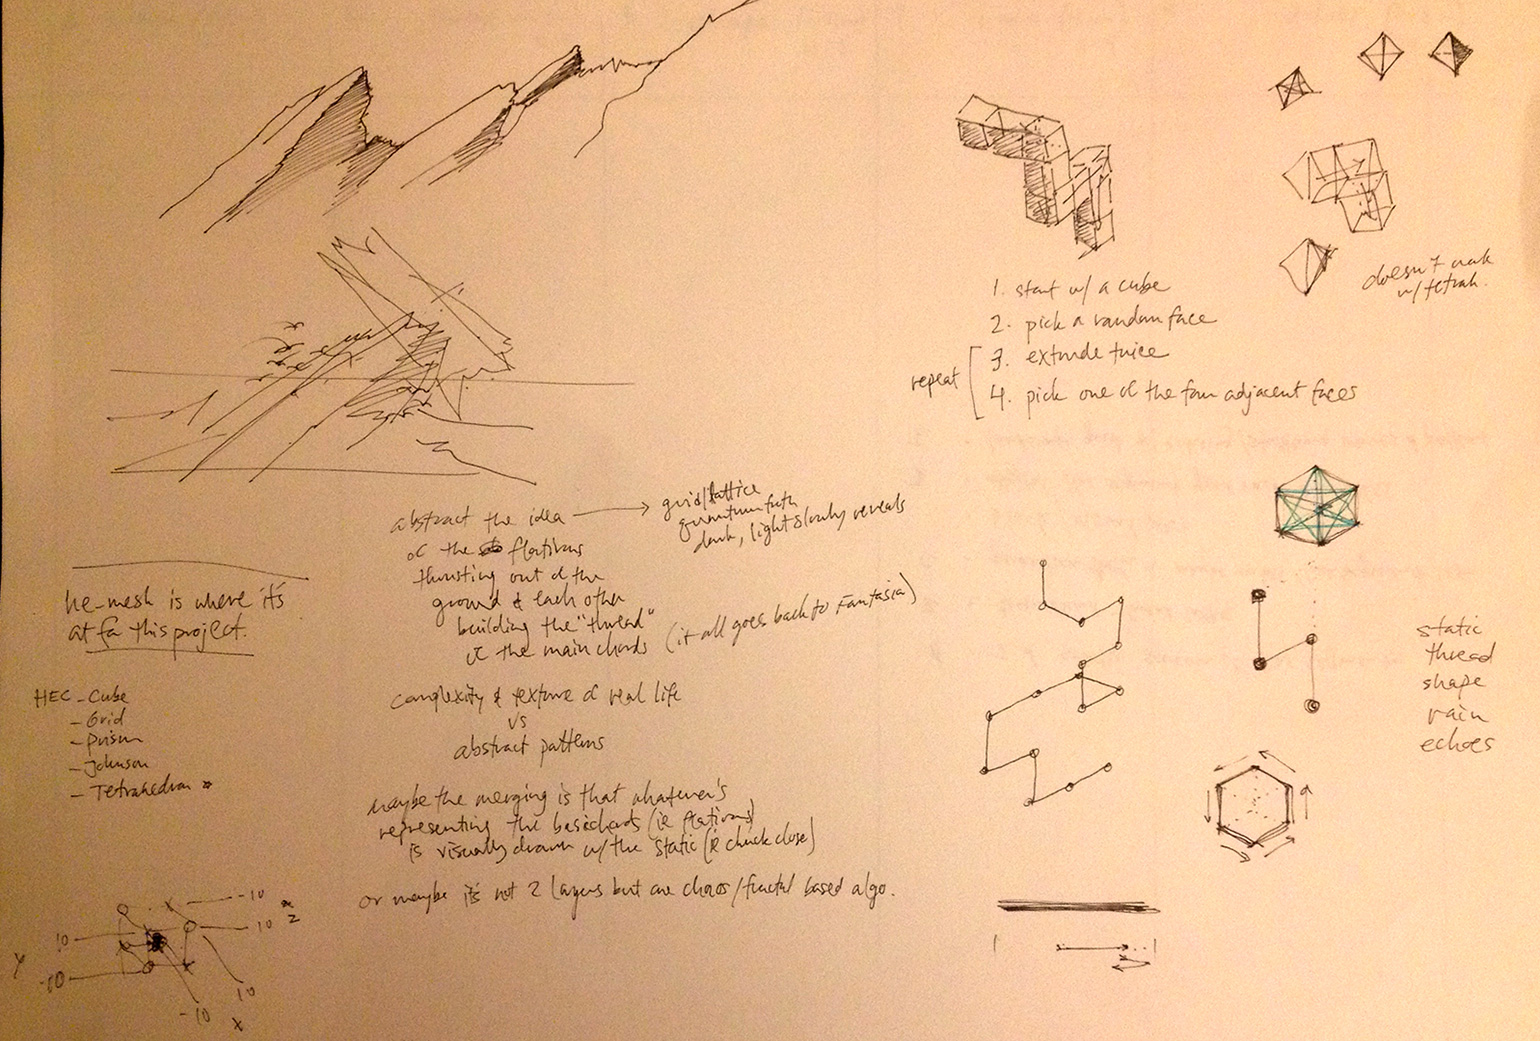 abstract the idea
of the flatirons
thrusting out of the
ground & each other
building the "thread"
of the main chords
(it all goes back to Fantasia)
grid/lattice
quantum path
dark, light slowly reveals
complexity & texture of real life
vs
abstract patterns
maybe the merging is that whatever's
representing the basechords (ie flatirons)
is visually drawn w/ the static (ie chuck close)
or maybe it's not 2 layers but one chaos/fractal based algo.
he-mesh is where it's
at for this project.
HEC - Cube
- Grid
- Prism
- Johnson
- Tetrahedron *
10
-10
-10
10
z
10
-10
y
x
1. start w/ a cube
2. pick a random face
3. extrude twice
4. pick one of the four adjacent faces
repeat
doesn't work
w/ tetrah.
static
thread
shape
rain
echoes